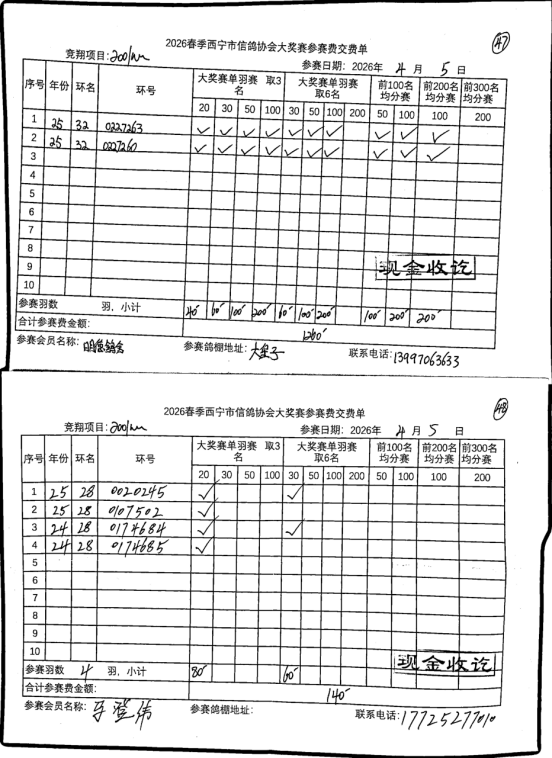 ㊼
2026春季西宁市信鸽协会大奖赛参赛费交费单
竞翔项目:200/km 参赛日期: 2026年 4 月 5 日
序号 年份 环名 环号 大奖赛单羽赛 取3名 大奖赛单羽赛 取6名 前100名均分赛 前200名均分赛 前300名均分赛
20 30 50 100 30 50 100 200 50 100 100 200
1 25 32 0227263 ✓ ✓ ✓ ✓ ✓ ✓ ✓ ✓ ✓ ✓
2 25 32 0227260 ✓ ✓ ✓ ✓ ✓ ✓ ✓ ✓ ✓ ✓
3
4
5
6
7
8
9
10
现金收讫
参赛羽数 羽，小计 40 60 100 200 60 100 200 100 200 200
合计参赛费金额: 1260
参赛会员名称: 参赛鸽棚地址: 联系电话:13997063633
㊽
2026春季西宁市信鸽协会大奖赛参赛费交费单
竞翔项目:200/km 参赛日期: 2026年 4 月 5 日
序号 年份 环名 环号 大奖赛单羽赛 取3名 大奖赛单羽赛 取6名 前100名均分赛 前200名均分赛 前300名均分赛
20 30 50 100 30 50 100 200 50 100 100 200
1 25 28 0020245 ✓ ✓
2 25 28 0107502 ✓
3 24 28 0174684 ✓ ✓
4 24 28 0174685 ✓
5
6
7
8
9
10
现金收讫
参赛羽数 4 羽，小计 80 60
合计参赛费金额: 140
参赛会员名称: 参赛鸽棚地址: 联系电话:17725277010